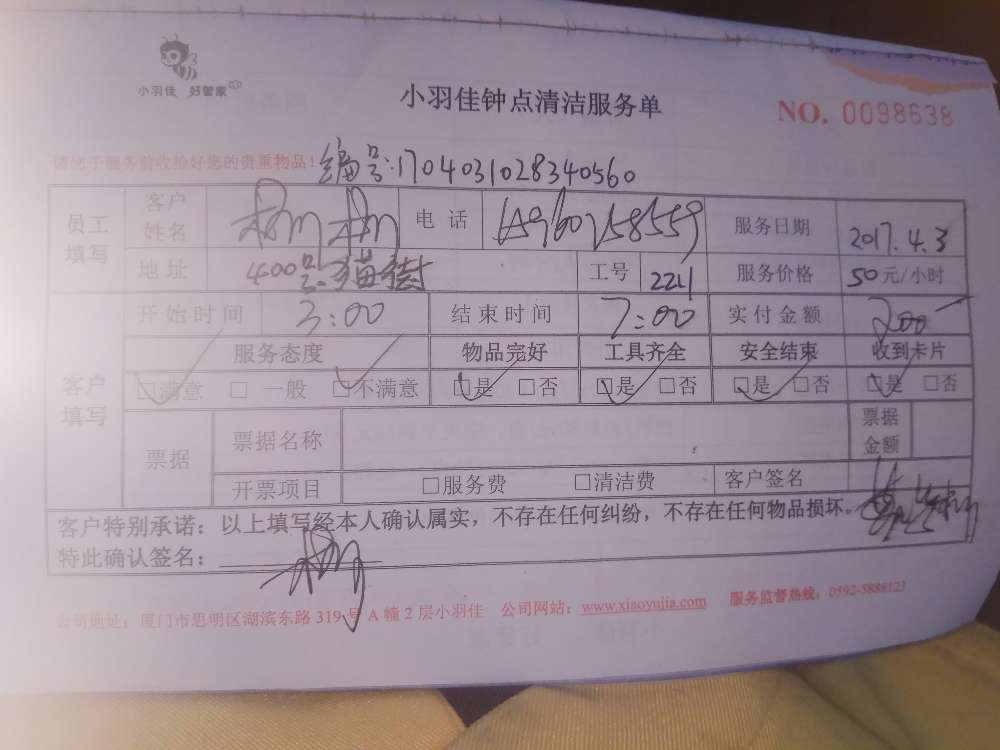 小羽佳 好管家
小羽佳钟点清洁服务单
NO. 0098638
请您于服务前收拾好您的贵重物品!
编号:1704031028340560
员工填写 客户姓名 电话 服务日期 2017.4.3
地址 400号 猫街 工号 2221 服务价格 50元/小时
客户填写 开始时间 3:00 结束时间 7:00 实付金额 200
服务态度 物品完好 工具齐全 安全结束 收到卡片
□满意 □ 一般 □不满意 □是 □否 □是 □否 □是 □否 □是 □否
票据 票据名称 票据金额
开票项目 □服务费 □清洁费 客户签名
客户特别承诺：以上填写经本人确认属实，不存在任何纠纷，不存在任何物品损坏。
特此确认签名：
公司地址：厦门市思明区湖滨东路319号A幢2层小羽佳 公司网站：www.xiaoyujia.com 服务监督热线：0592-5888123